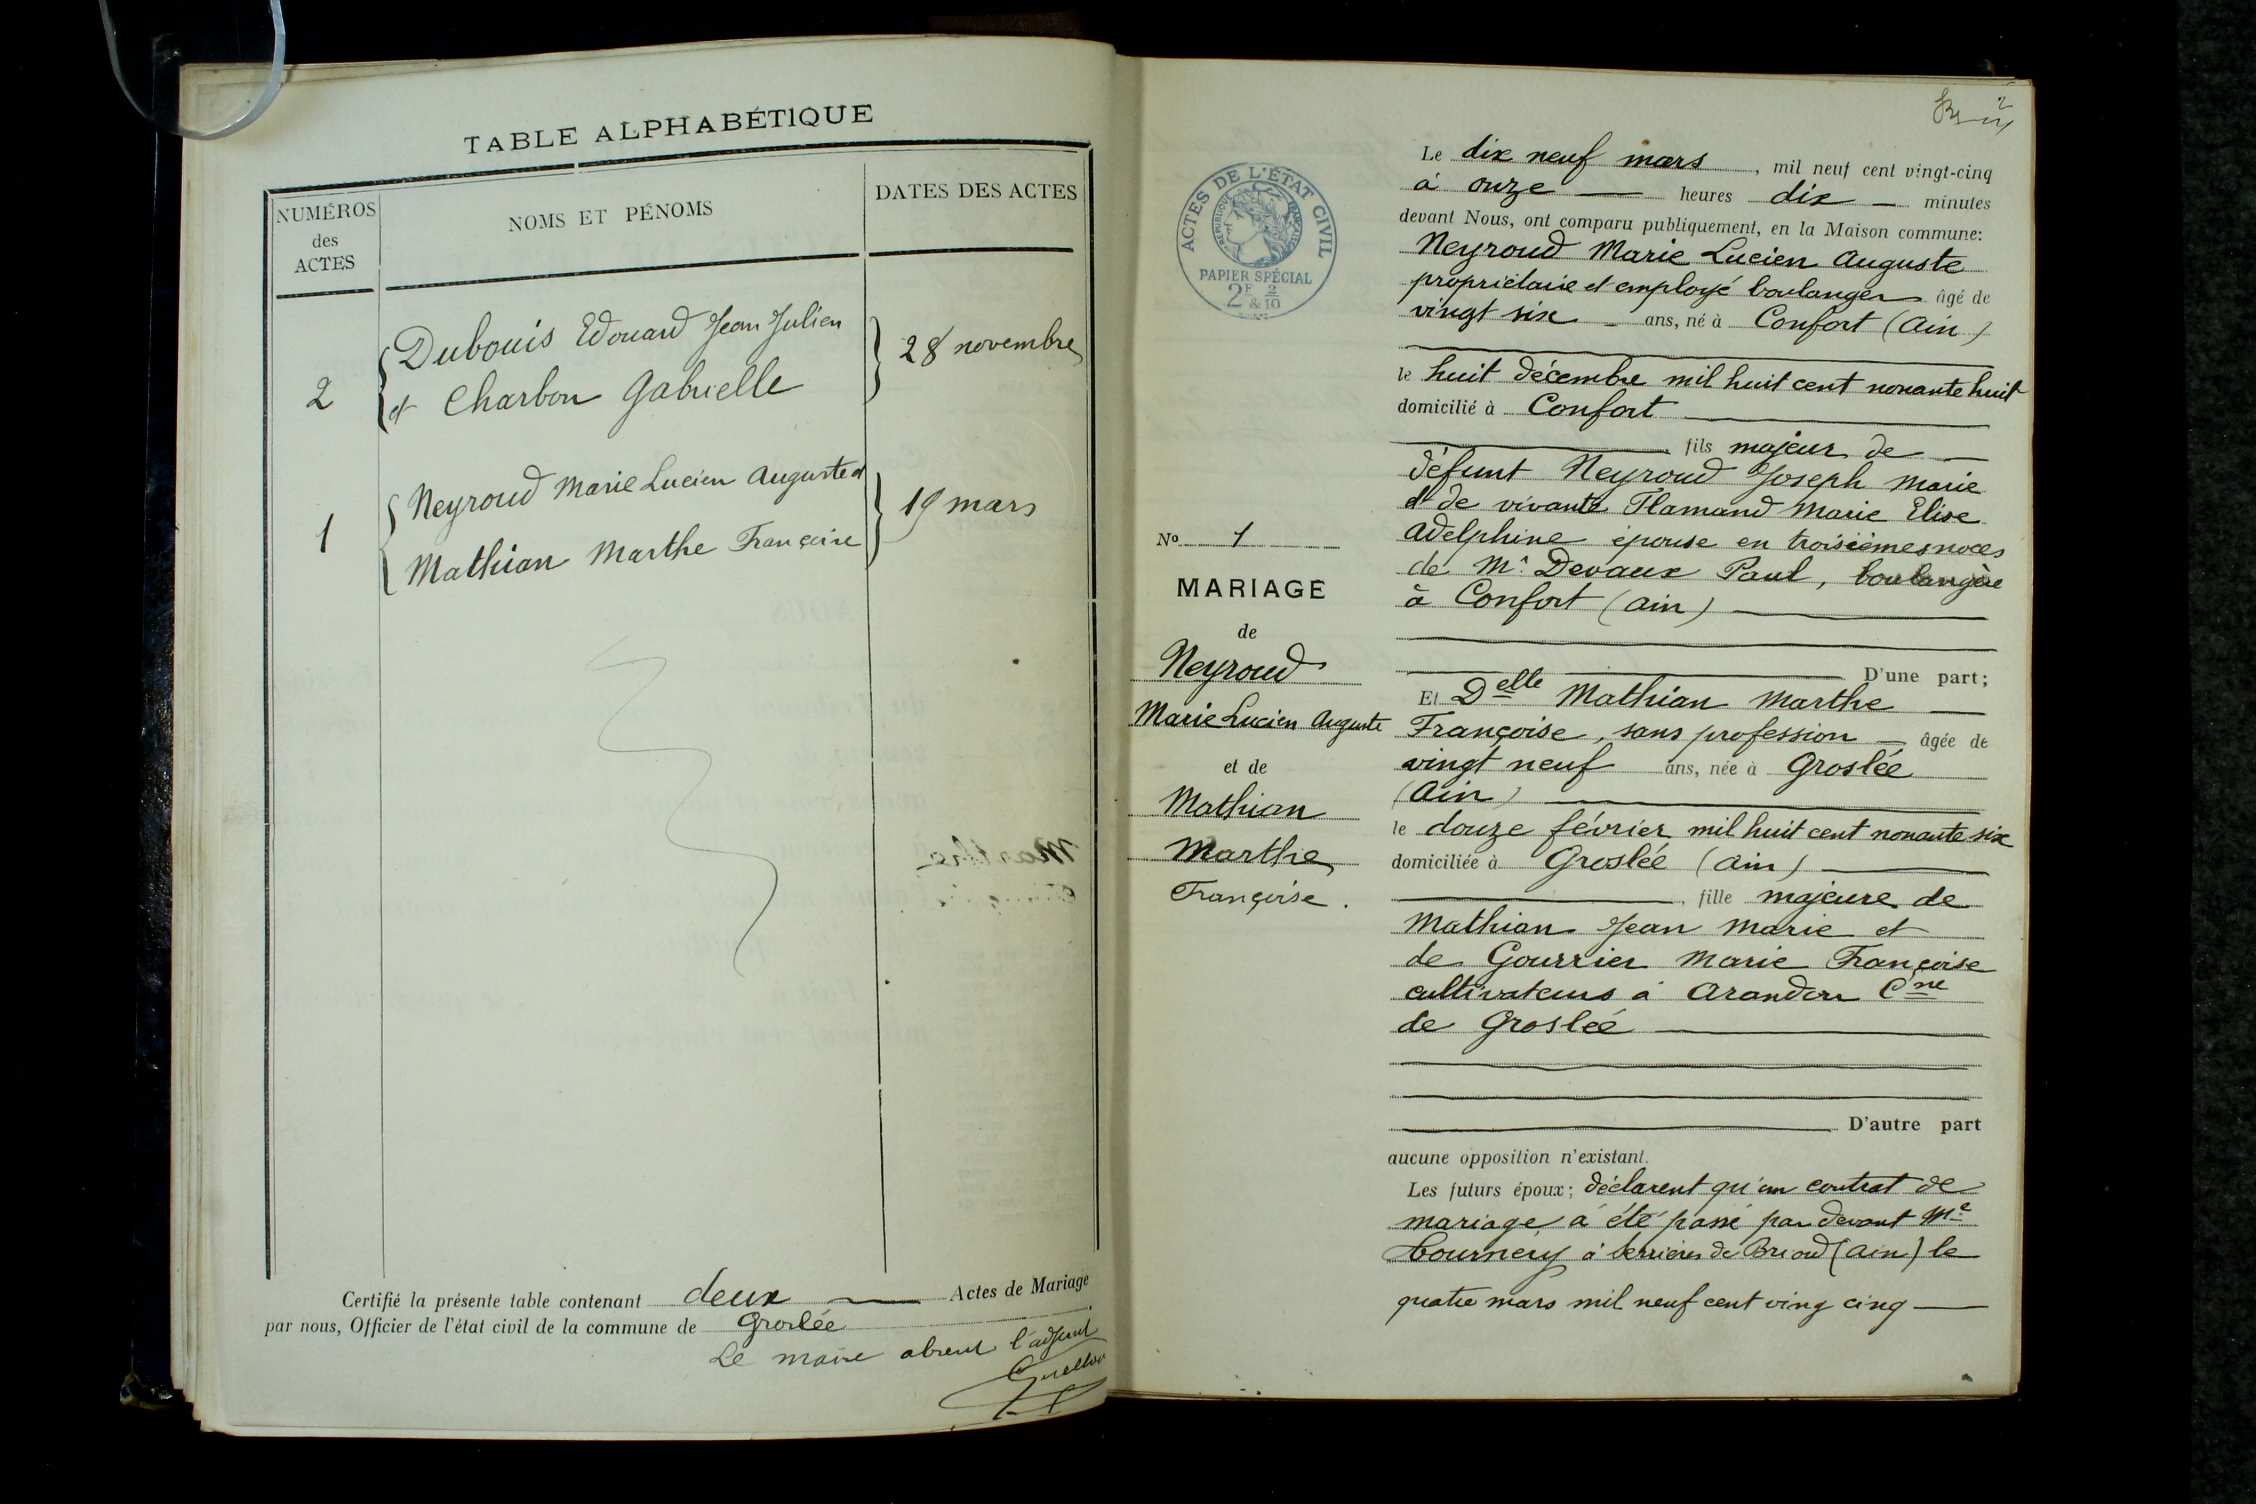 TABLE ALPHABÉTIQUE
NUMÉROS
des
ACTES
NOMS ET PÉNOMS
DATES DES ACTES
2
Dubouis Edouard Jean Julien
et Charbon Gabrielle
28 novembre
1
Neyroud Marie Lucien Auguste et
Mathian Marthe Françoise
19 mars
Certifié la présente table contenant deux Actes de Mariage
par nous, Officier de l'état civil de la commune de Groslée
Le maire absent l'adjoint
ACTES DE L'ÉTAT CIVIL
RÉPUBLIQUE FRANÇAISE
PAPIER SPÉCIAL
2F & 2/10
No 1
MARIAGE
de
Neyroud
Marie Lucien Auguste
et de
Mathian
Marthe
Françoise.
2
Le dix neuf mars, mil neuf cent vingt-cinq
à onze — heures dix — minutes
devant Nous, ont comparu publiquement, en la Maison commune:
Neyroud Marie Lucien Auguste
propriétaire et employé boulanger âgé de
vingt six — ans, né à Confort (Ain)
le huit décembre mil huit cent nonante huit
domicilié à Confort
fils majeur de —
défunt Neyroud Joseph Marie
et de vivante Flamand Marie Elise
Adelphine épouse en troisièmes noces
de Mr. Devaux Paul, boulangère
à Confort (Ain)
D'une part;
Et Delle Mathian Marthe —
Françoise, sans profession — âgée de
vingt neuf ans, née à Groslée
(Ain)
le douze février mil huit cent nonante six
domiciliée à Groslée (Ain)
, fille majeure de
Mathian Jean Marie et
de Gourrier Marie Françoise
cultivateurs à Arandon Cne
de Groslée
D'autre part
aucune opposition n'existant.
Les futurs époux; déclarent qu'un contrat de
mariage à été passé par devant Me
à Serrières de Briord (Ain) le
quatre mars mil neuf cent ving cinq —